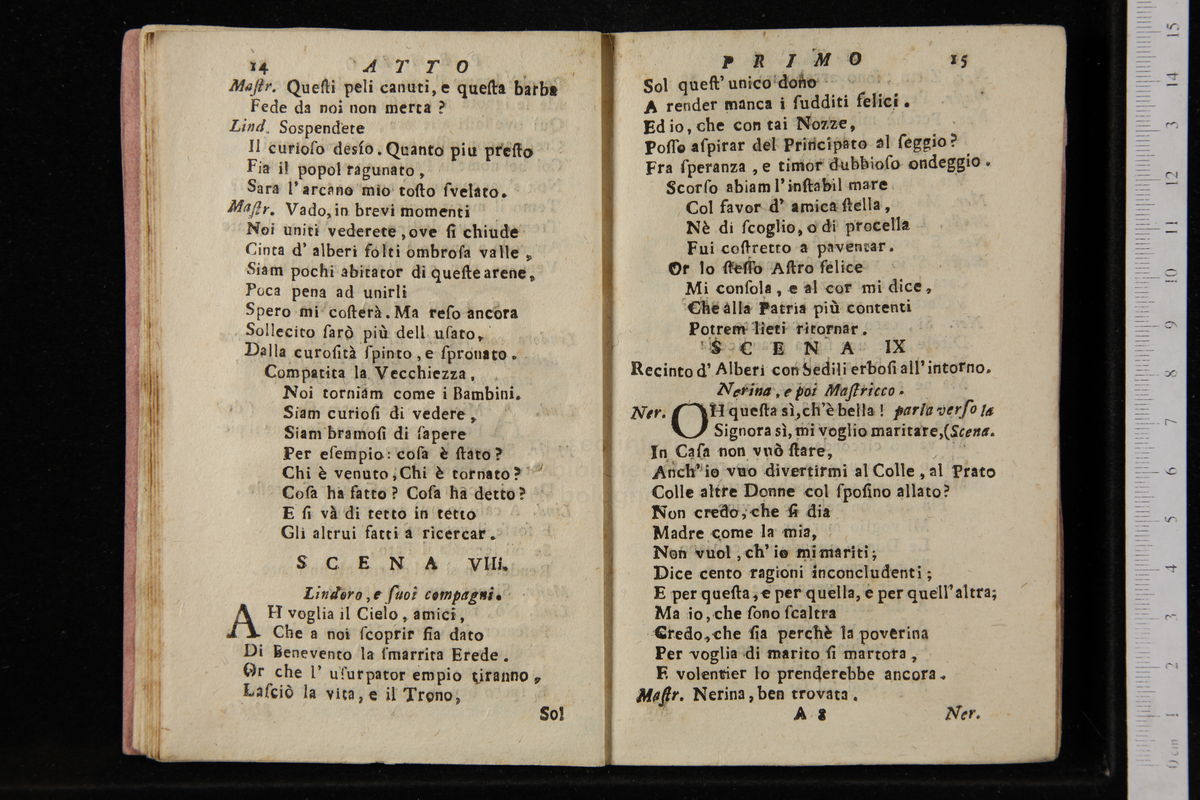 14 ATTO
Maſtr. Queſti peli canuti, e queſta barba
Fede da noi non merta ?
Lind. Sospendete
Il curioſo desío. Quanto piu preſto
Fia il popol ragunato ,
Sara l'arcano mio toſto ſvelato.
Maſtr. Vado, in brevi momenti
Noi uniti vederete , ove ſi chiude
Cinta d' alberi folti ombroſa valle ,
Siam pochi abitator di queſte arene,
Poca pena ad unirli
Spero mi coſterà. Ma reſo ancora
Sollecito ſarò più dell uſato,
Dalla curoſità ſpinto , e ſpronato .
Compatita la Vecchiezza,
Noi torniám come i Bambini.
Siam curioſi di vedere ,
Siam bramoſi di ſapere
Per eſempio : coſa è ſtato ?
Chi è venuto , Chi è tornato ?
Coſa ha fatto ? Coſa ha detto ?
E ſi và di tetto in tetto
Gli altrui fatti a ricercar .
SCENA VIII.
Lindoro, e ſuoi compagni.
AH voglia il Cielo , amici ,
Che a noi ſcoprir ſia dato
Di Benevento la ſmarrita Erede .
Or che l' uſurpator empio tiranno ,
Laſciò la vita, e il Trono,
Sol
PRIMO 15
Sol queſt' unico dono
A render manca i ſudditi felici .
Ed io, che con tai Nozze,
Poſſo aſpirar del Principato al ſeggio ?
Fra ſperanza , e timor dubbioſo ondeggio .
Scorſo abiam l'inſtabil mare
Col favor d' amica ſtella ,
Nè di ſcoglio, o di procella
Fui coſtretto a paventar.
Or lo ſteſſo Aſtro felice
Mi conſola , e al cor mi dice ,
Che alla Patria più contenti
Potrem lieti ritornar .
SCENA IX
Recinto d' Alberi con Sedili erboſi all' intorno.
Nerina , e poi Maſtricco .
Ner. OH queſta sì, ch'è bella ! parla verſo la
Signora sì, mi voglio maritare, (Scena.
In Caſa non vuò ſtare,
Anch' io vuo divertirmi al Colle , al Prato
Colle altre Donne col ſpoſino allato ?
Non credo , che ſi dia
Madre come la mia,
Non vuol , ch' io mi mariti ;
Dice cento ragioni inconcludenti ;
E per queſta , e per quella, e per quell'altra;
Ma io , che ſono ſcaltra
Credo , che ſia perchè la poverina
Per voglia di marito ſi martora ,
E volentier lo prenderebbe ancora .
Maſtr. Nerina , ben trovata .
A 8 Ner.
15
14
13
12
11
10
9
8
7
6
5
4
3
2
1
0 cm